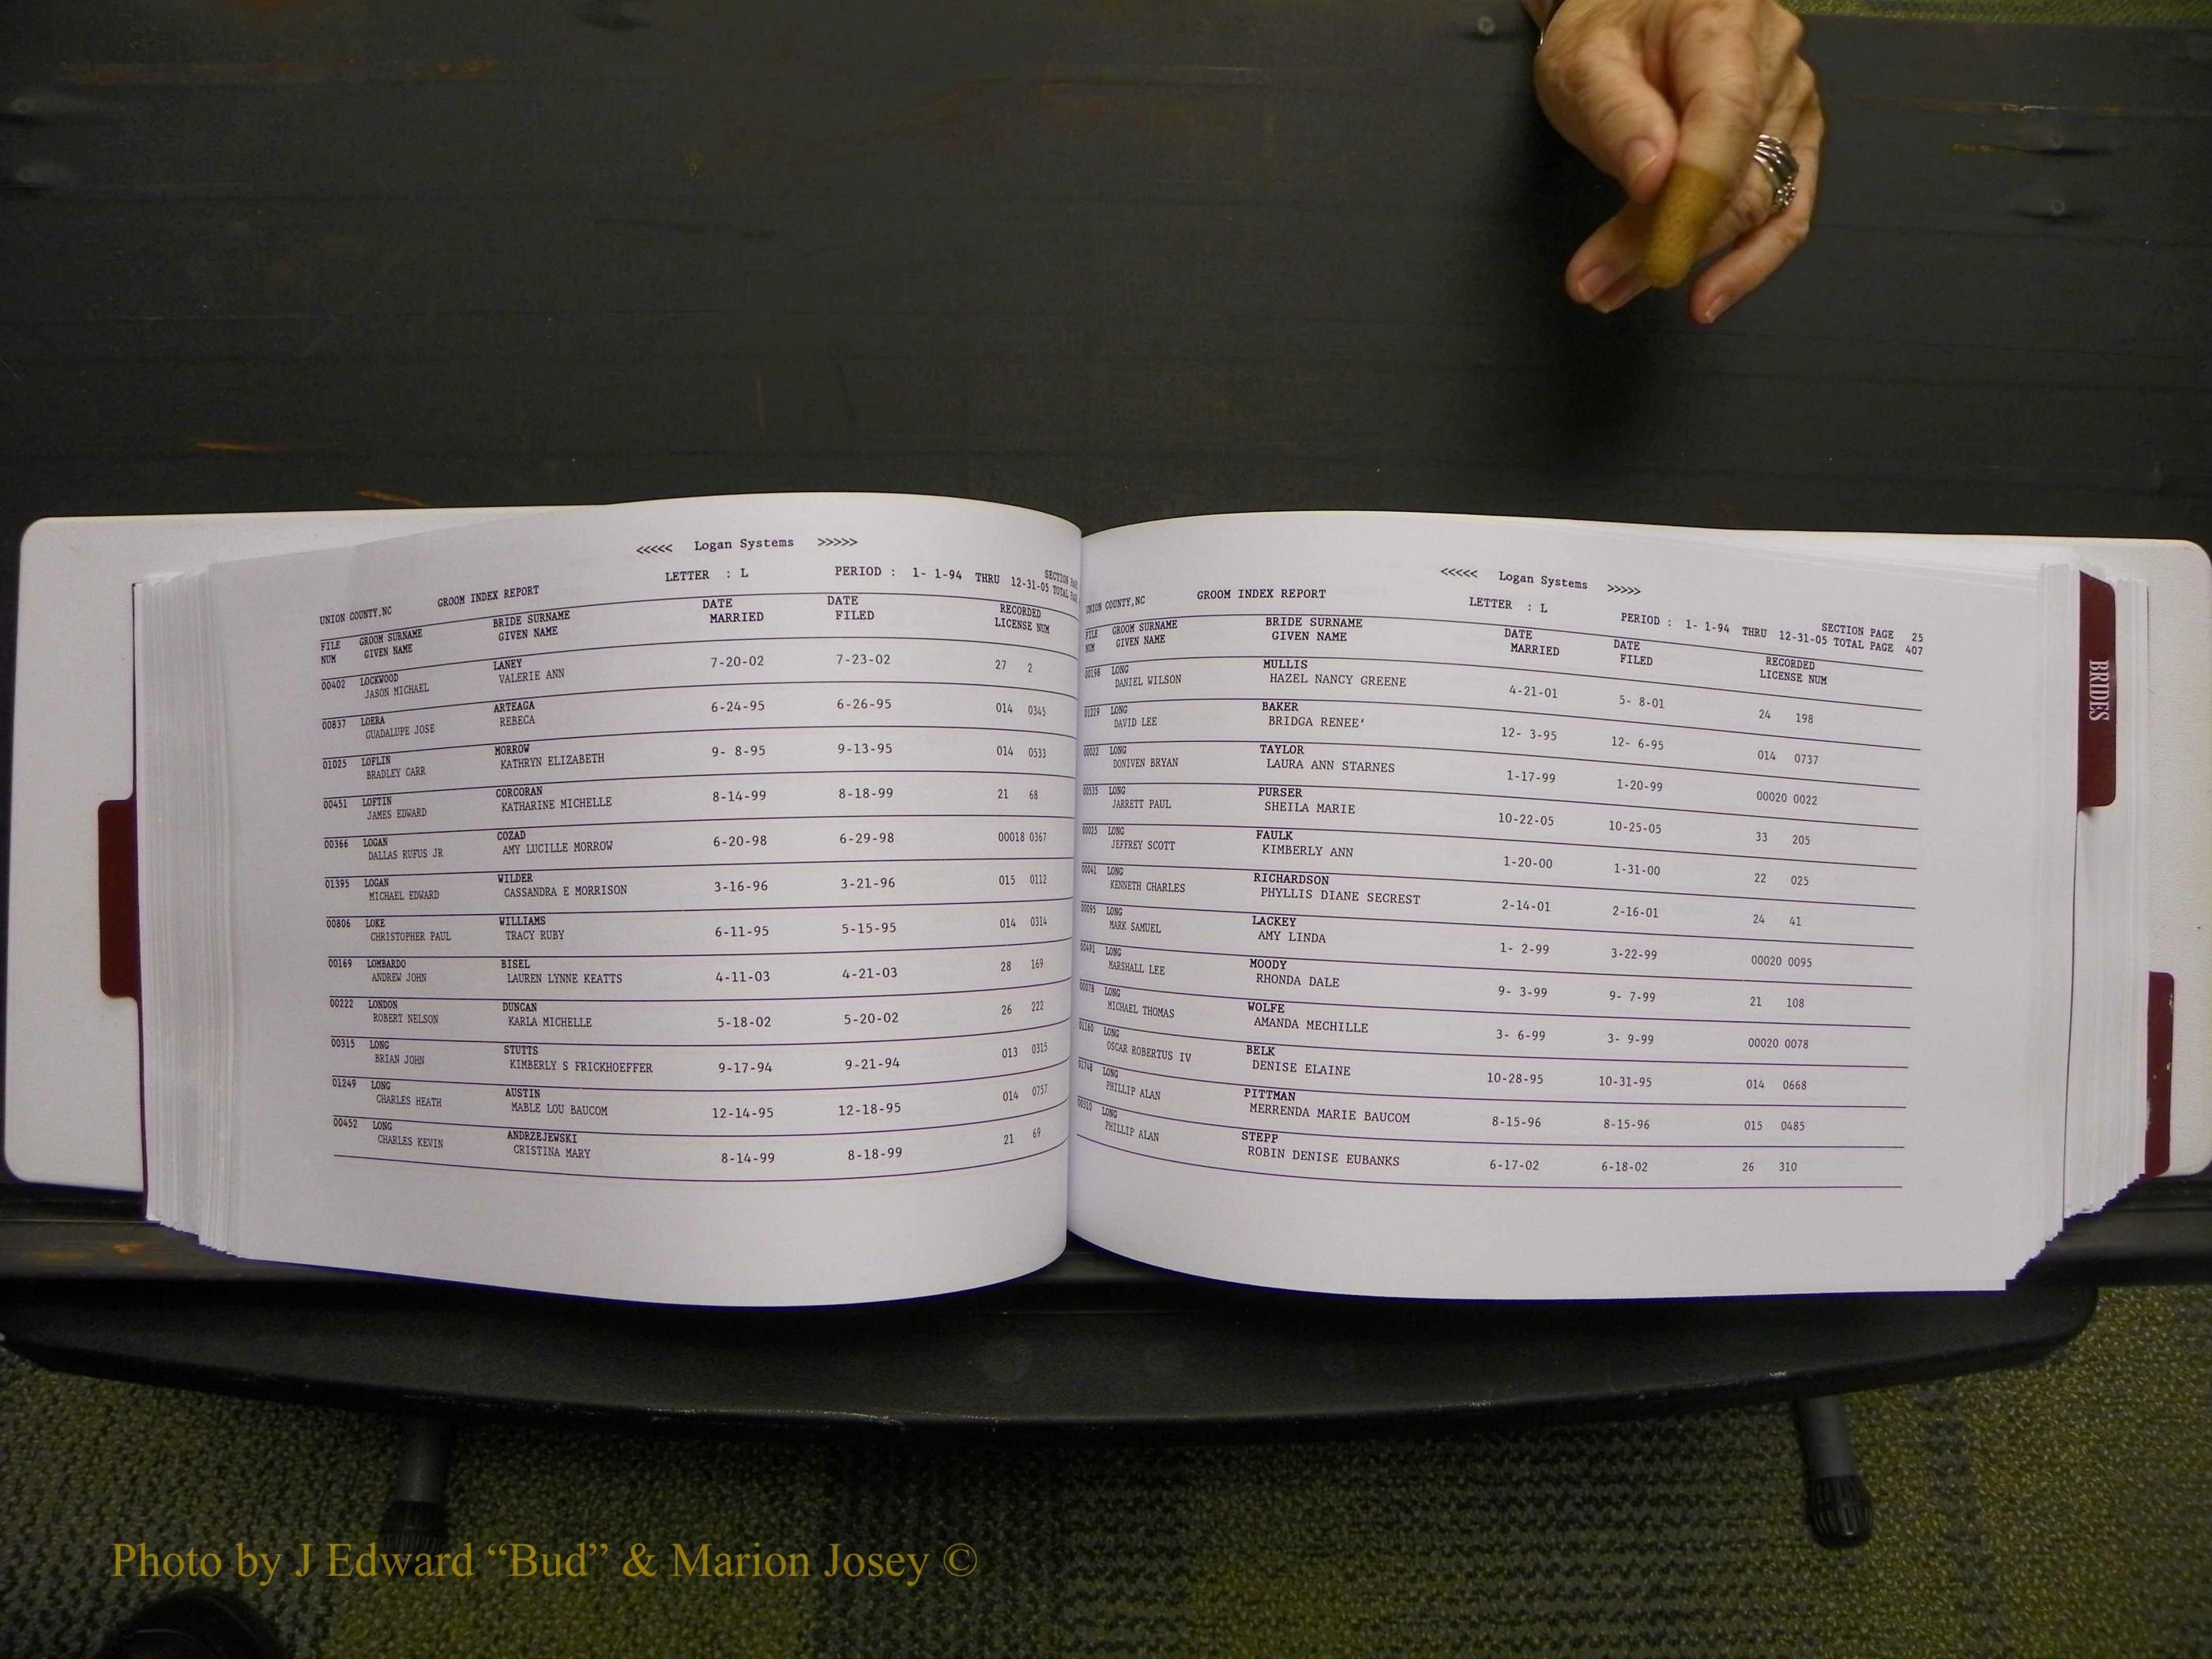 <<<<< Logan Systems >>>>>
LETTER : L PERIOD : 1- 1-94 THRU 12-31-05 TOTAL
SECTION
UNION COUNTY,NC GROOM INDEX REPORT
FILE NUM GROOM SURNAME GIVEN NAME BRIDE SURNAME GIVEN NAME DATE MARRIED DATE FILED RECORDED LICENSE NUM
00402 LOCKWOOD LANEY 7-20-02 7-23-02 27 2
JASON MICHAEL VALERIE ANN
00837 LOERA ARTEAGA 6-24-95 6-26-95 014 0345
GUADALUPE JOSE REBECA
01025 LOFLIN MORROW 9- 8-95 9-13-95 014 0533
BRADLEY CARR KATHRYN ELIZABETH
00451 LOFTIN CORCORAN 8-14-99 8-18-99 21 68
JAMES EDWARD KATHARINE MICHELLE
00366 LOGAN COZAD 6-20-98 6-29-98 00018 0367
DALLAS RUFUS JR AMY LUCILLE MORROW
01395 LOGAN WILDER 3-16-96 3-21-96 015 0112
MICHAEL EDWARD CASSANDRA E MORRISON
00806 LOKE WILLIAMS 6-11-95 5-15-95 014 0314
CHRISTOPHER PAUL TRACY RUBY
00169 LOMBARDO BISEL 4-11-03 4-21-03 28 169
ANDREW JOHN LAUREN LYNNE KEATTS
00222 LONDON DUNCAN 5-18-02 5-20-02 26 222
ROBERT NELSON KARLA MICHELLE
00315 LONG STUTTS 9-17-94 9-21-94 013 0315
BRIAN JOHN KIMBERLY S FRICKHOEFFER
01249 LONG AUSTIN 12-14-95 12-18-95 014 0757
CHARLES HEATH MABLE LOU BAUCOM
00452 LONG ANDRZEJEWSKI 8-14-99 8-18-99 21 69
CHARLES KEVIN CRISTINA MARY
<<<<< Logan Systems >>>>>
UNION COUNTY,NC GROOM INDEX REPORT LETTER : L
SECTION PAGE 25
PERIOD : 1- 1-94 THRU 12-31-05 TOTAL PAGE 407
FILE NUM GROOM SURNAME GIVEN NAME BRIDE SURNAME GIVEN NAME DATE MARRIED DATE FILED RECORDED LICENSE NUM
00198 LONG MULLIS 4-21-01 5- 8-01 24 198
DANIEL WILSON HAZEL NANCY GREENE
01229 LONG BAKER 12- 3-95 12- 6-95 014 0737
DAVID LEE BRIDGA RENEE'
00022 LONG TAYLOR 1-17-99 1-20-99 00020 0022
DONIVEN BRYAN LAURA ANN STARNES
00535 LONG PURSER 10-22-05 10-25-05 33 205
JARRETT PAUL SHEILA MARIE
00025 LONG FAULK 1-20-00 1-31-00 22 025
JEFFREY SCOTT KIMBERLY ANN
00041 LONG RICHARDSON 2-14-01 2-16-01 24 41
KENNETH CHARLES PHYLLIS DIANE SECREST
00095 LONG LACKEY 1- 2-99 3-22-99 00020 0095
MARK SAMUEL AMY LINDA
00491 LONG MOODY 9- 3-99 9- 7-99 21 108
MARSHALL LEE RHONDA DALE
00078 LONG WOLFE 3- 6-99 3- 9-99 00020 0078
MICHAEL THOMAS AMANDA MECHILLE
01160 LONG BELK 10-28-95 10-31-95 014 0668
OSCAR ROBERTUS IV DENISE ELAINE
01748 LONG PITTMAN 8-15-96 8-15-96 015 0485
PHILLIP ALAN MERRENDA MARIE BAUCOM
00310 LONG STEPP 6-17-02 6-18-02 26 310
PHILLIP ALAN ROBIN DENISE EUBANKS
BRIDES
Photo by J Edward “Bud” & Marion Josey ©